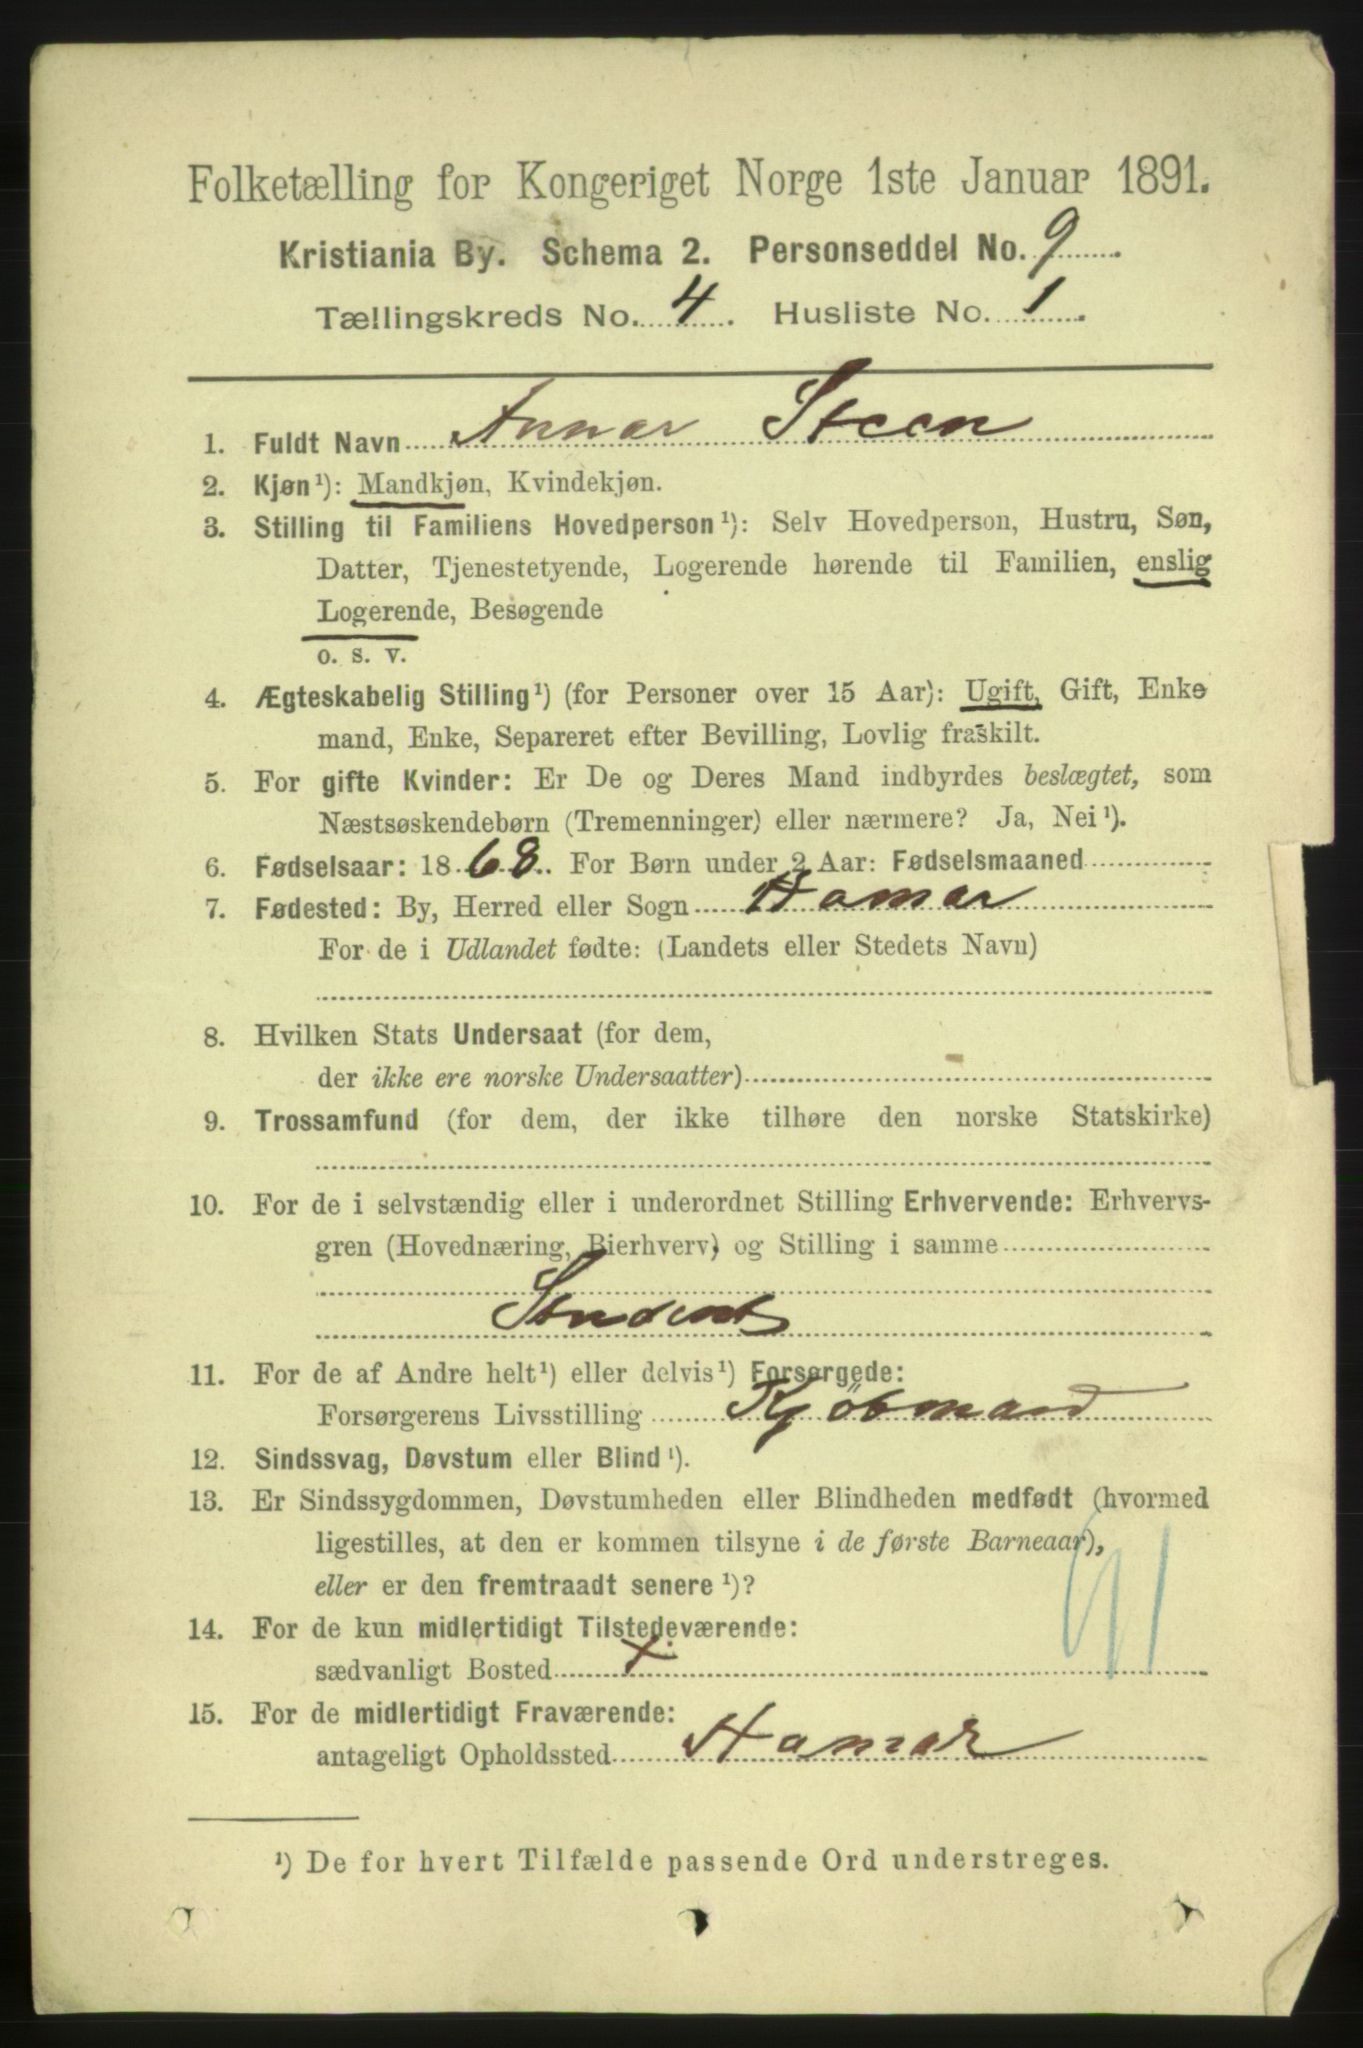 Folketælling for Kongeriget Norge 1ste Januar 1891.
Kristiania By. Schema 2. Personseddel No. 9
Tællingskreds No. 4. Husliste No. 1.
1. Fuldt Navn Annar Steen
2. Kjøn¹): Mandkjøn, Kvindekjøn.
3. Stilling til Familiens Hovedperson¹): Selv Hovedperson, Hustru, Søn,
Datter, Tjenestetyende, Logerende hørende til Familien, enslig
Logerende, Besøgende
o. s. v.
4. Ægteskabelig Stilling¹) (for Personer over 15 Aar): Ugift, Gift, Enke
mand, Enke, Separeret efter Bevilling, Lovlig fraskilt.
5. For gifte Kvinder: Er De og Deres Mand indbyrdes beslægtet, som
Næstsøskendebørn (Tremenninger) eller nærmere? Ja, Nei¹).
6. Fødselsaar: 1868. For Børn under 2 Aar: Fødselsmaaned
7. Fødested: By, Herred eller Sogn Hamar
For de i Udlandet fødte: (Landets eller Stedets Navn)
8. Hvilken Stats Undersaat (for dem,
der ikke ere norske Undersaatter)
9. Trossamfund (for dem, der ikke tilhøre den norske Statskirke)
10. For de i selvstændig eller i underordnet Stilling Erhvervende: Erhvervs-
gren (Hovednæring, Bierhverv) og Stilling i samme
Student
11. For de af Andre helt¹) eller delvis¹) Forsørgede:
Forsørgerens Livsstilling Kjøbmand
12. Sindssvag, Døvstum eller Blind¹).
13. Er Sindssygdommen, Døvstumheden eller Blindheden medfødt (hvormed
ligestilles, at den er kommen tilsyne i de første Barneaar),
eller er den fremtraadt senere¹)?
14. For de kun midlertidigt Tilstedeværende:
sædvanligt Bosted x
15. For de midlertidigt Fraværende:
antageligt Opholdssted Hamar
¹) De for hvert Tilfælde passende Ord understreges.